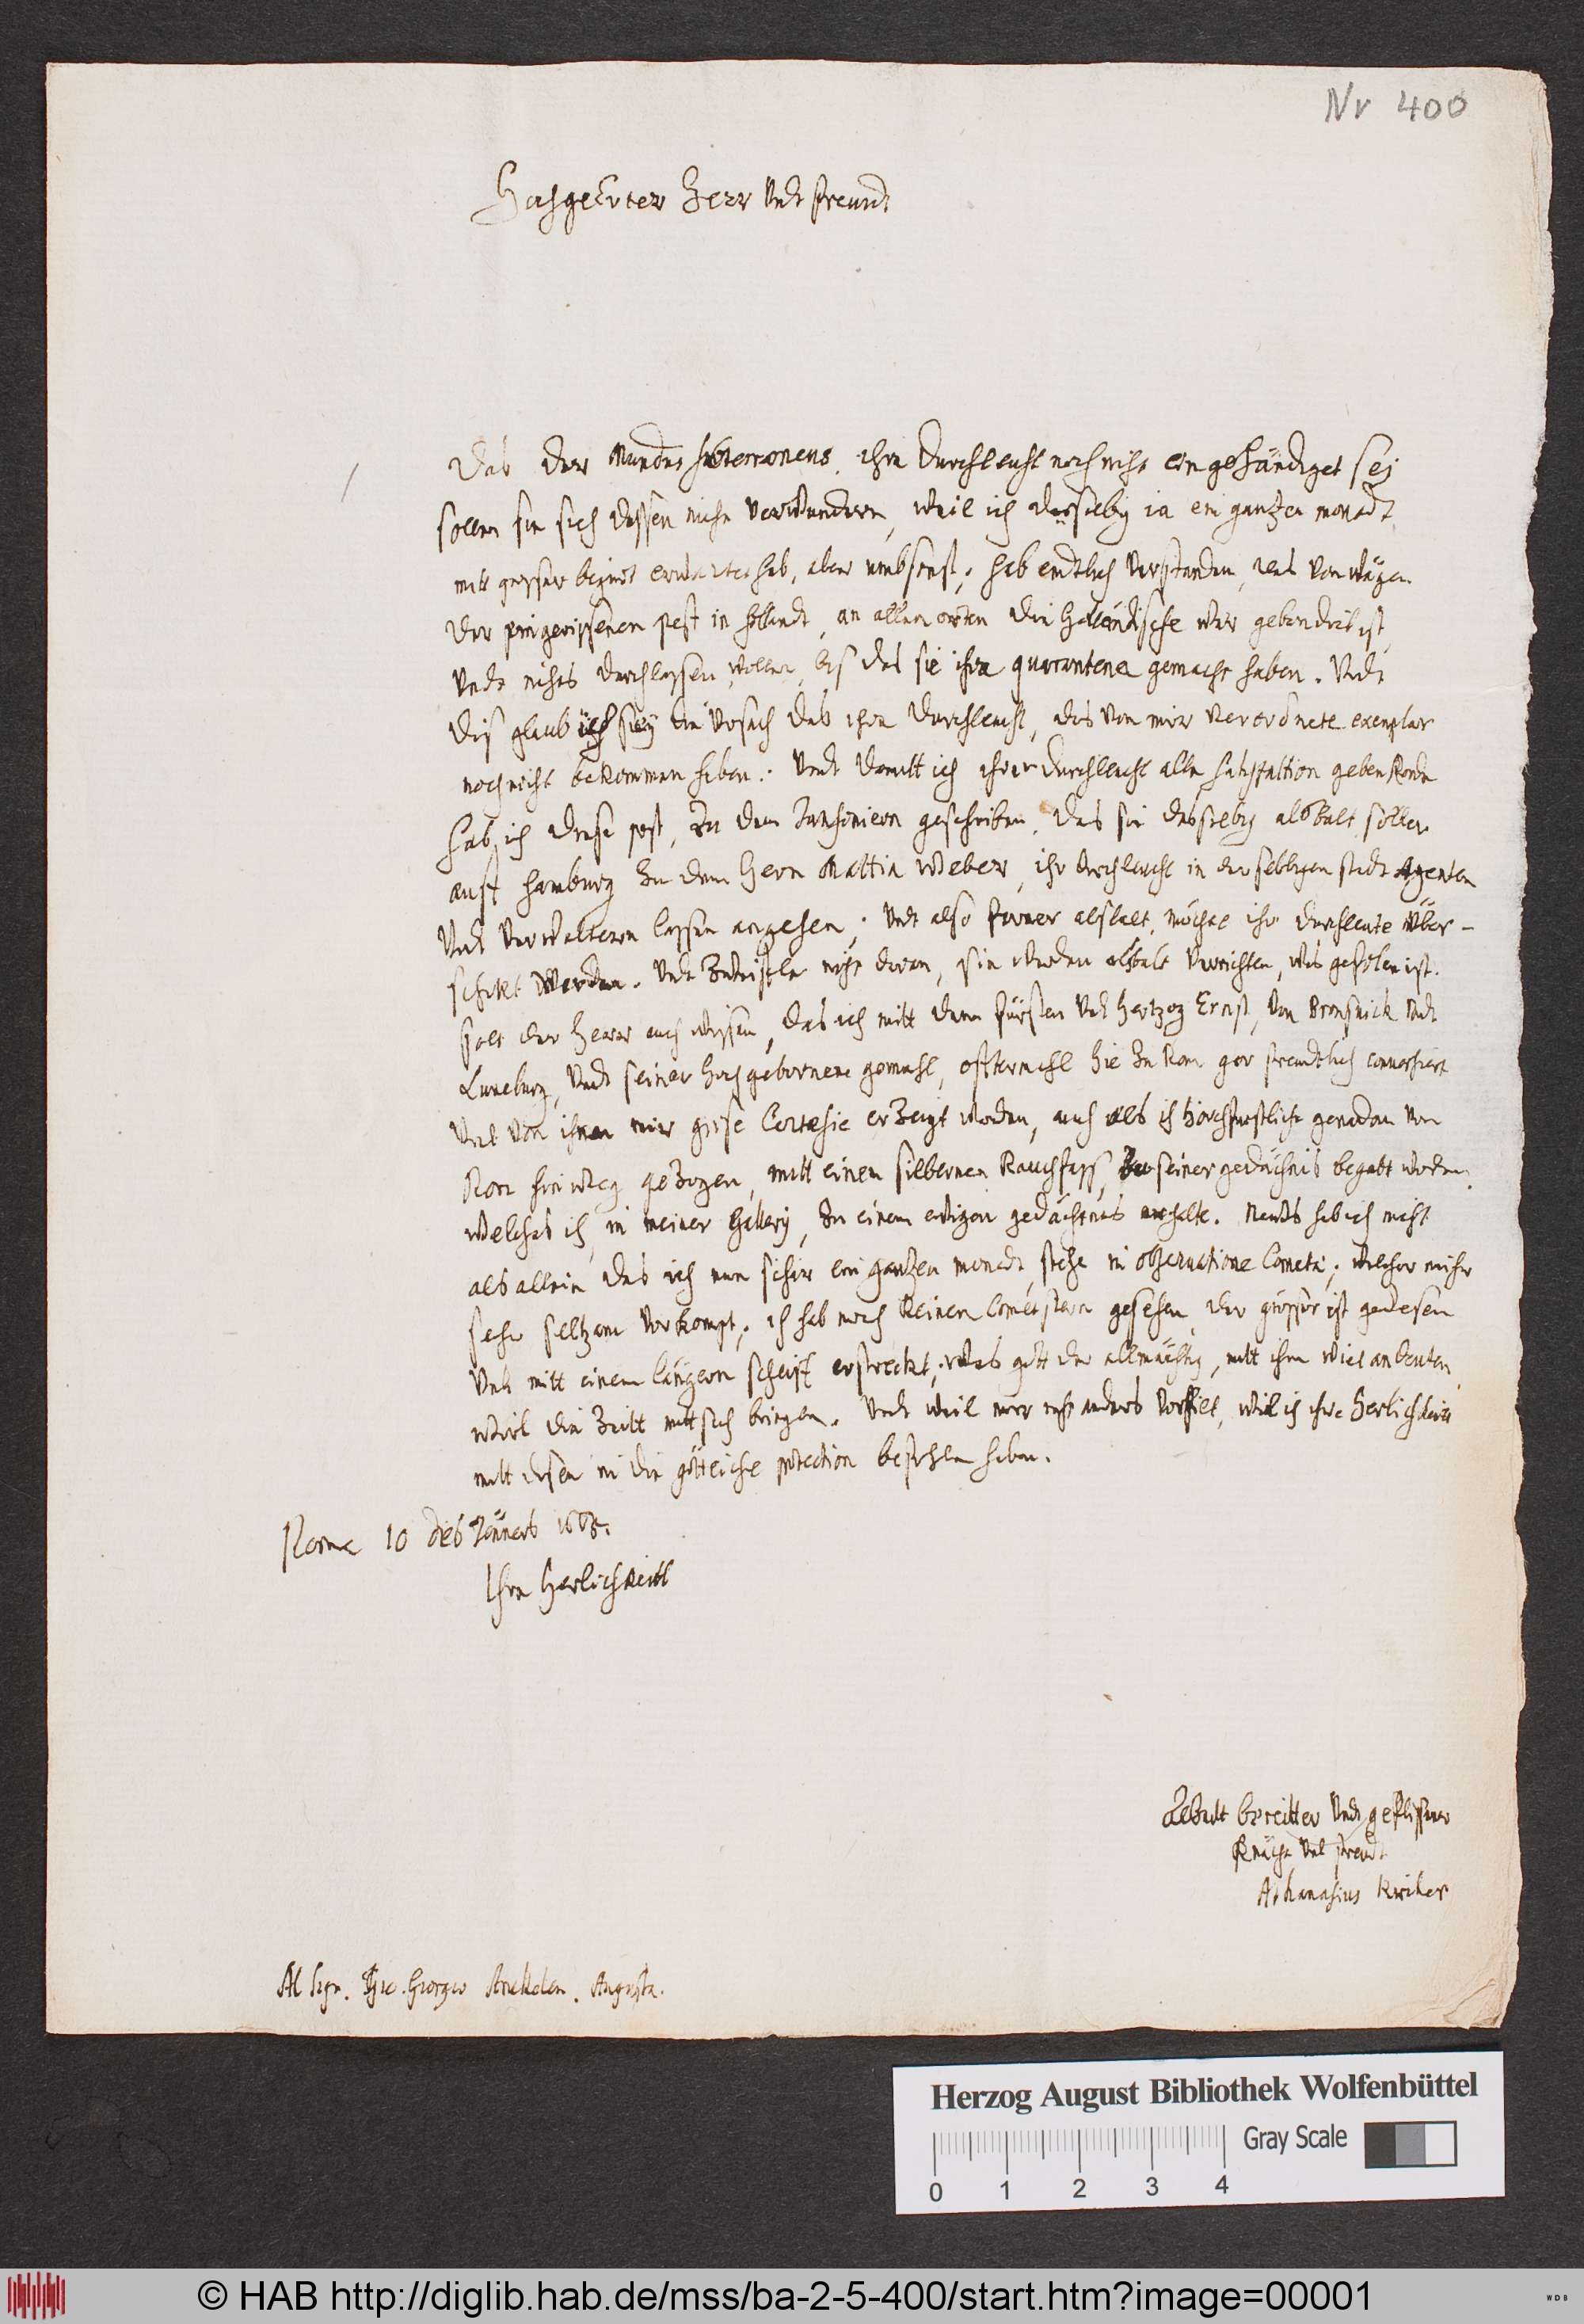 Nr 400
HochgeErter Herr Undt freundt
Das der Mundus subterraneus ihr durchleucht noch nicht eingehändiget sej
sollen sie sich dessen nicht verwundern, weil ich desselbig ja ein gantzen monadt
mitt grosser begirdt erwartet hab, aber umbsonst; hab endtlich verstanden, das von wägen
der eingerissenen pest in hollandt, an allen orten die Hollendische war gebandirt ist
Undt nichts durchlassen wollen, bis das sie ihre quarantena gemacht haben. Undt
dis glaub ich sey die Ursach das ihre durchleucht, das von mir verordnete exemplar
noch nicht bekommen haben: Undt damitt ich ihrer durchleucht alle satisfaltion geben konde
hab ich diese post, zu dem Jansoniern geschriben, das sie dasselbig alsbalt sollen
auff hamburg zu dem Hern Mattia Weber, ihr durchleucht in derselbigen stadt Agenten
Undt Verwaltern lassen angehen; Undt also ferner alsbalt möchte ihr durchleute über-
schikt werden. Undt zweifle nicht daran, sie werden alsbalt verrichten, was gefolen ist.
solt der Herr auch wissen, das ich mitt dem fürsten Undt Hertzog Ernst, von Bronswick Undt
Luneburg, Undt seiner hochgebornene gemahl, offtermahl hie zu Rom gar freundtlich conversiert
Undt von ihnen mir grose Cortesie erzeigt worden, auch als ihr hochfurstliche genaden von
Rom hinweg gezogen, mitt einem silbernen Rauchfass, zu seiner gedächnis begabt worden
welches ich in meiner Gallery, zu einem ewigen gedächtnus auffhalte. Neues hab ich nicht
als allein das ich nun schir ein gantzen monadt stehe in observatione Cometæ; welcher micher
sehr seltzam vorkompt; ich hab noch keinen Cometstern gesehen, der grosser ist gewesen
Undt mitt einem längern scheiff erstreckt; was gott der allmächtig, mitt ihm wiel andeuten,
wirt die zeitt mitt sich bringen. Undt weil mir nicht anders vorfielt, wil ich ihre Herlichkeit
mitt disem in die götteiche protection befohlen haben.
Roma 10 des Jenners 1665.
Ihre Herlichkeitt
Alzeitt bereitter Undt geflissner
Knächt Undt freundt
Athanasius Kircher
Al Sign. Gio. Giorgio Anckelen. Augusta.
Herzog August Bibliothek Wolfenbüttel
Gray Scale
0 1 2 3 4
© HAB http://diglib.hab.de/mss/ba-2-5-400/start.htm?image=00001
WDB